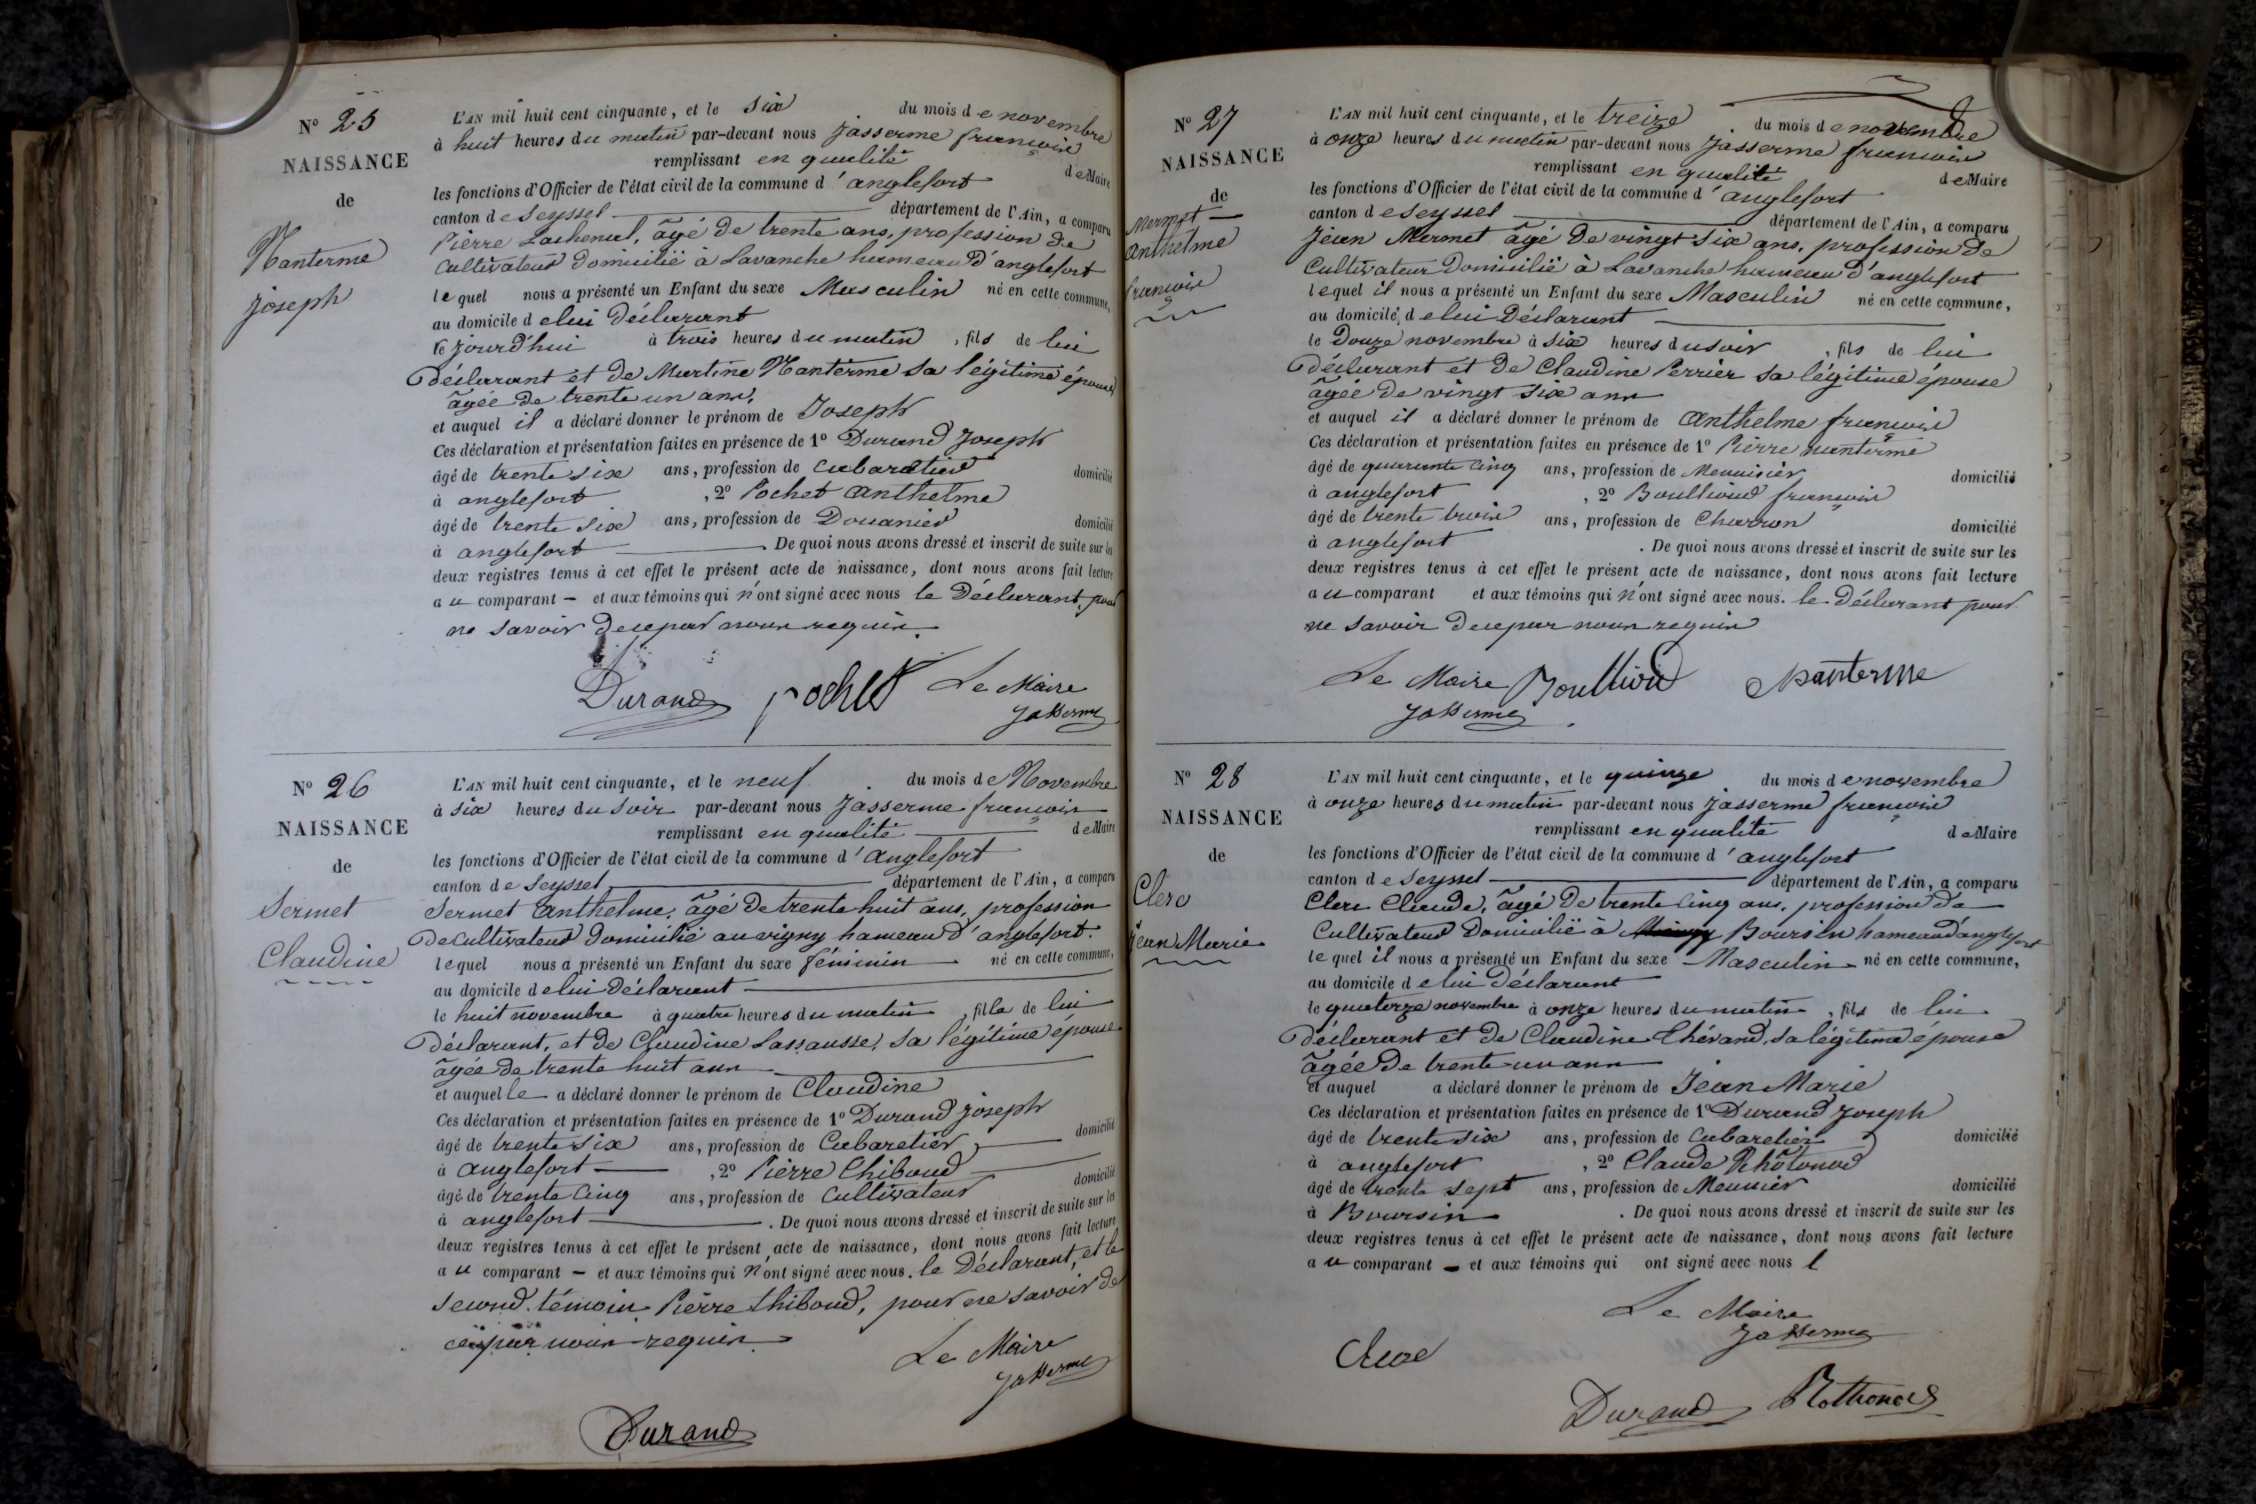 N° 25
NAISSANCE
de
Nanterme
joseph
L'AN mil huit cent cinquante, et le six du mois de novembre
à huit heures du matin par-devant nous jasserme françois
remplissant en qualité de Maire
les fonctions d'Officier de l'état civil de la commune d'anglefort
canton de Seyssel département de l'Ain, a comparu
Pierre âgé de trente ans, profession de
Cultivateur domicilié à Lavanche hameau d'anglefort
lequel nous a présenté un Enfant du sexe Masculin né en cette commune,
au domicile de lui déclarant
le jourd'hui à trois heures du matin, fils de lui
déclarant et de Martine Nanterme sa légitime épouse
âgée de trente un ans,
et auquel il a déclaré donner le prénom de Joseph
Ces déclaration et présentation faites en présence de 1° Durand Joseph
âgé de trente six ans, profession de cabaretier domicilié
à anglefort, 2° Pochet anthelme
âgé de trente six ans, profession de Douanier domicilié
à anglefort. De quoi nous avons dressé et inscrit de suite sur les
deux registres tenus à cet effet le présent acte de naissance, dont nous avons fait lecture
au comparant – et aux témoins qui n'ont signé avec nous le Déclarant, pour
ne savoir de ce par nous requis.
Durand pochet Le Maire
Jasserme
N° 26
NAISSANCE
de
Sermet
Claudine
L'AN mil huit cent cinquante, et le neuf du mois de Novembre
à six heures du soir par-devant nous Jasserme françois
remplissant en qualité de Maire
les fonctions d'Officier de l'état civil de la commune d'anglefort
canton de Seyssel département de l'Ain, a comparu
Sermet anthelme, âgé de trente huit ans, profession
de cultivateur domicilié au vigny hameau d'anglefort.
lequel nous a présenté un Enfant du sexe féminin né en cette commune,
au domicile de lui déclarant
le huit novembre à quatre heures du matin, fille de lui
déclarant, et de Claudine Lassausse, sa légitime épouse
âgée de trente huit ans
et auquelle a déclaré donner le prénom de Claudine
Ces déclaration et présentation faites en présence de 1° Durand joseph
âgé de trente six ans, profession de Cabaretier domicilié
à anglefort, 2° Pierre Thiboud
âgé de trente cinq ans, profession de cultivateur domicilié
à anglefort. De quoi nous avons dressé et inscrit de suite sur les
deux registres tenus à cet effet le présent acte de naissance, dont nous avons fait lecture
au comparant – et aux témoins qui n'ont signé avec nous. le Déclarant, et le
second témoin Pierre thiboud, pour ne savoir de
ce par nous requis.
Le Maire
Jasserme
Durand
N° 27
NAISSANCE
de
Mermet
anthelme
françois
L'AN mil huit cent cinquante, et le treize du mois de novembre
à onze heures du matin par-devant nous Jasserme françois
remplissant en qualité de Maire
les fonctions d'Officier de l'état civil de la commune d'anglefort
canton de Seyssel département de l'Ain, a comparu
Jean Mermet âgé de vingt six ans, profession de
Cultivateur domicilié à Lavanche hameau d'anglefort
lequel il nous a présenté un Enfant du sexe Masculin né en cette commune,
au domicile de lui déclarant
le Douze novembre à six heures du soir, fils de lui
déclarant et de Claudine Perrier sa légitime épouse
âgée de vingt six ans
et auquel il a déclaré donner le prénom de anthelme françois
Ces déclaration et présentation faites en présence de 1° Pierre nanterme
âgé de quarante cinq ans, profession de Menuisier domicilié
à anglefort, 2° Boullioud françois
âgé de trente trois ans, profession de Charron domicilié
à anglefort. De quoi nous avons dressé et inscrit de suite sur les
deux registres tenus à cet effet le présent acte de naissance, dont nous avons fait lecture
au comparant et aux témoins qui n'ont signé avec nous. le Déclarant pour
ne savoir de ce par nous requis
Le Maire Boullioud Nanterme
Jasserme
N° 28
NAISSANCE
de
Clerc
jean Marie
L'AN mil huit cent cinquante, et le quinze du mois de novembre
à onze heures du matin par-devant nous Jasserme françois
remplissant en qualité de Maire
les fonctions d'Officier de l'état civil de la commune d'anglefort
canton de Seyssel département de l'Ain, a comparu
Clerc Claude, âgé de trente cinq ans, profession de
Cultivateur domicilié à Boursin hameau d'anglefort
lequel il nous a présenté un Enfant du sexe Masculin né en cette commune,
au domicile de lui déclarant
le quatorze novembre à onze heures du matin, fils de lui
déclarant et de Claudine Thévand, sa légitime épouse
âgée de trente un ans
et auquel a déclaré donner le prénom de Jean Marie
Ces déclaration et présentation faites en présence de 1° Durand Joseph
âgé de trente six ans, profession de cabaretier domicilié
à anglefort, 2° Claude Rhôtonod
âgé de trente sept ans, profession de Meunier domicilié
à Boursin. De quoi nous avons dressé et inscrit de suite sur les
deux registres tenus à cet effet le présent acte de naissance, dont nous avons fait lecture
au comparant – et aux témoins qui ont signé avec nous l
Le Maire
Jasserme
Clerc
Durand Rothonod